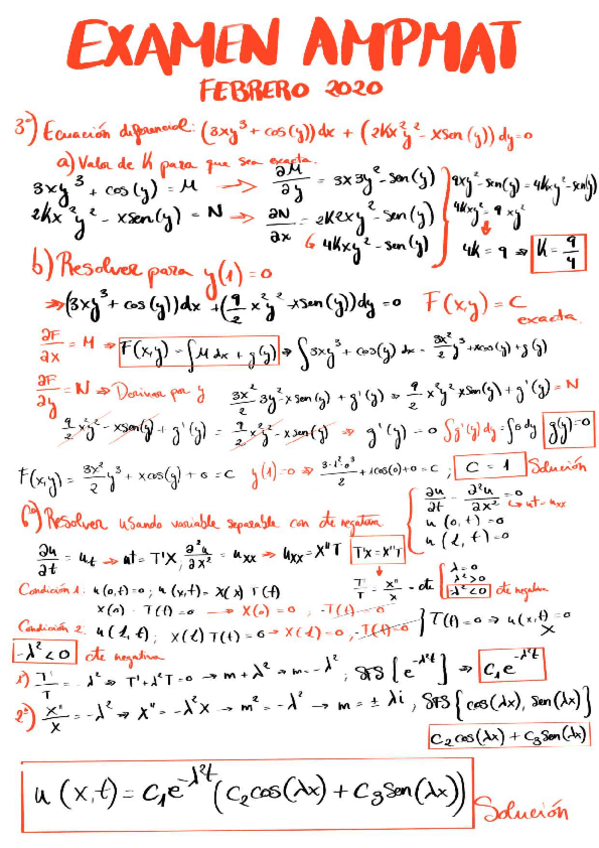 EXAMEN AMPMAT
FEBRERO 2020
3º) Ecuación diferencial: (3xy³ + cos(y))dx + (2Kx²y² - xsen(y))dy=0
a) Valor de K para que sea exacta.
3xy³ + cos(y) = M → ∂M/∂y = 3x3y² - sen(y)
2Kx²y² - xsen(y) = N → ∂N/∂x = 2K2xy² - sen(y)
↳ 4Kxy² - sen(y)
9xy² - sen(y) = 4Kxy² - sen(y)
4Kxy² = 9xy²
4K = 9 ⇒ K = 9/4
b) Resolver para y(1) = 0
⇒ (3xy³ + cos(y))dx + (9/2 x²y² - xsen(y))dy = 0 F(x,y) = C
exacta.
∂F/∂x = M ⇒ F(x,y) = ∫M dx + g(y) ⇒ ∫3xy³ + cos(y) dx = 3x²/2 y³ + xcos(y) + g(y)
∂F/∂y = N ⇒ Derivar por y 3x²/2 3y² - x sen(y) + g'(y) ⇒ 9/2 x²y² xsen(y) + g'(y) = N
9/2 x²y² - xsen(y) + g'(y) = 9/2 x²y² - xsen(y) ⇒ g'(y) = 0 ∫g'(y) dy = ∫0 dy g(y) = 0
F(x,y) = 3x²/2 y³ + xcos(y) + 0 = C y(1) = 0 ⇒ 3·1²·0³/2 + 1cos(0) + 0 = C ; C = 1 Solución
6º) Resolver usando variable separable con cte negativa
∂u/∂t - ∂²u/∂x² = 0
↳ ut = uxx
u(0,t) = 0
u(l,t) = 0
∂u/∂t = ut ⇒ ut = T'X, ∂²u/∂x² = uxx ⇒ uxx = X''T T'X = X''T
Condición 1: u(0,t) = 0 ; u(x,t) = X(x) T(t)
T'/T = X''/X = cte
λ = 0
λ² > 0
-λ² < 0 cte negativa
X(0) · T(t) = 0 → X(0) = 0 , T(t) = 0
Condición 2: u(l,t) ; X(l) T(t) = 0 → X(l) = 0, T(t) = 0 } T(t) = 0 ⇒ u(x,t) = 0
X
-λ² < 0 cte negativa
1º) T'/T = -λ² ⇒ T' + λ²T = 0 → m + λ² ⇒ m = -λ² ; SFS {e^(-λ²t)} ⇒ C₁e^(-λ²t)
2º) X''/X = -λ² ⇒ X'' = -λ²X → m² = -λ² → m = ± λi ; SFS {cos(λx), sen(λx)}
C₂cos(λx) + C₃sen(λx)
u(x,t) = C₁e^(-λ²t) (C₂cos(λx) + C₃sen(λx)) Solución